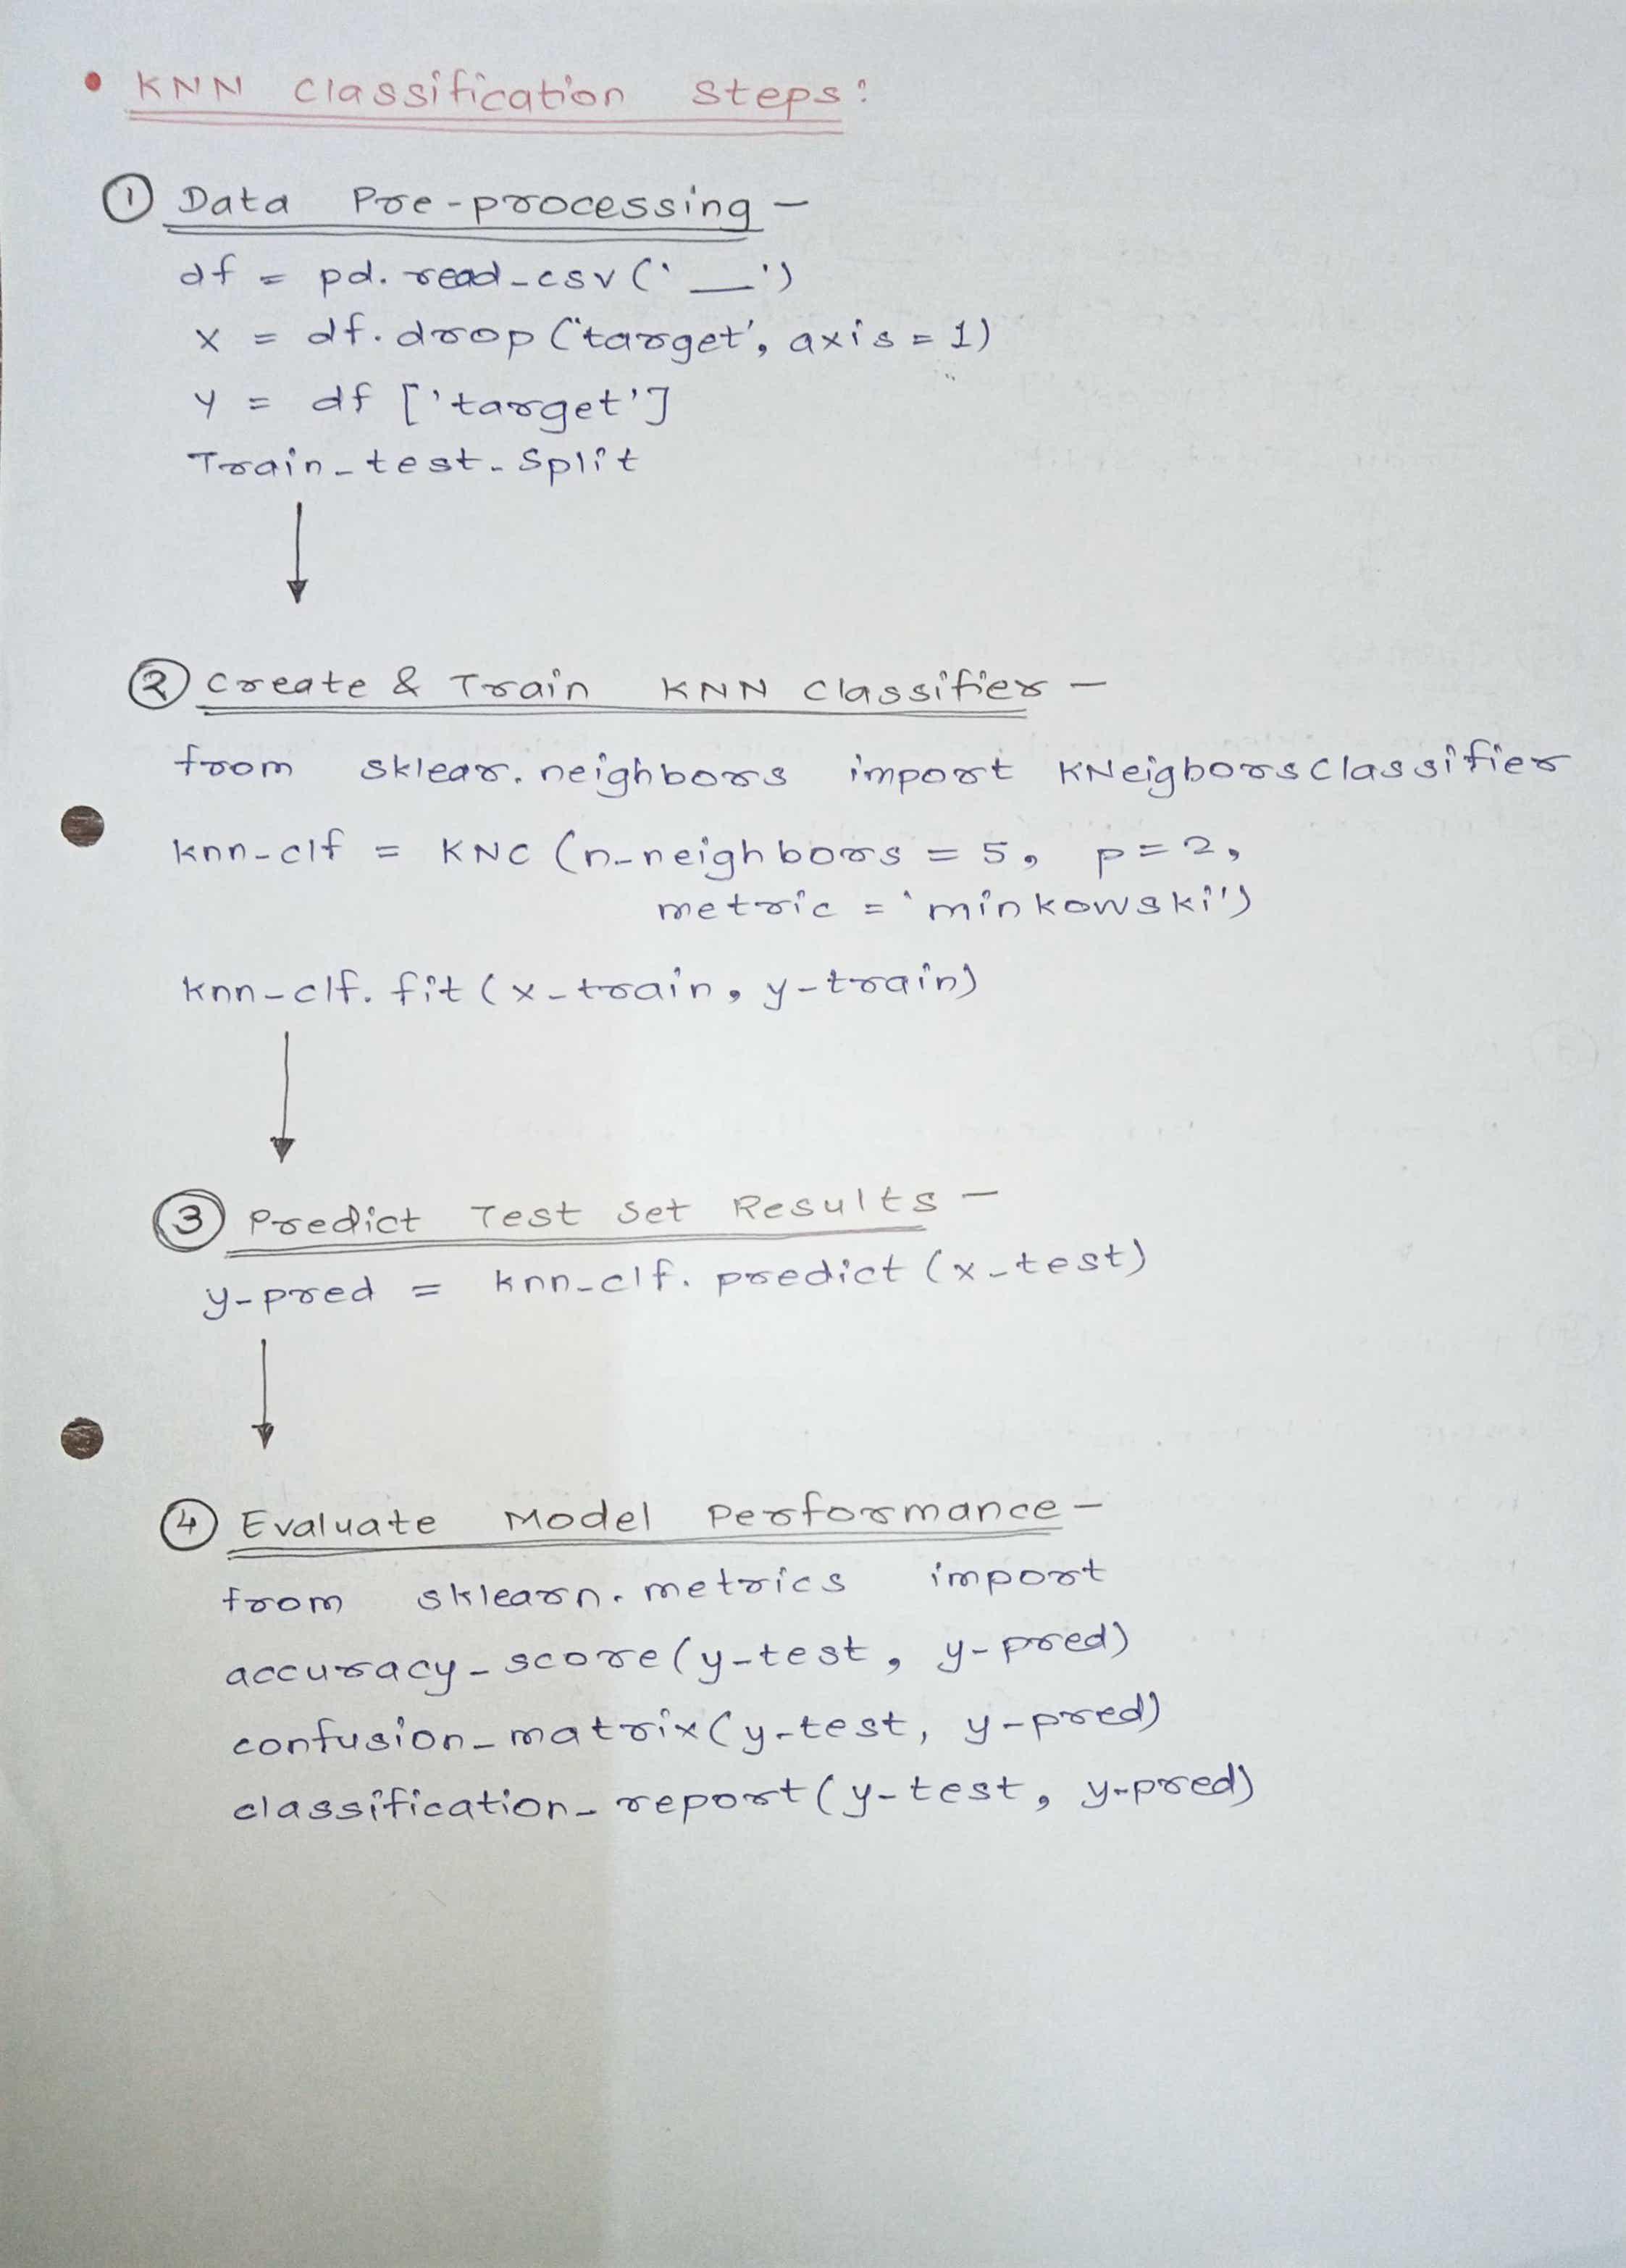 • KNN Classification Steps:
① Data Pre-processing –
df = pd.read_csv('__')
x = df.drop('target', axis = 1)
y = df ['target']
Train_test_Split
② Create & Train KNN Classifier –
from sklear.neighbors import KNeigborsClassifier
knn_clf = KNC (n_neighbors = 5, p = 2,
metric = 'minkowski')
knn_clf.fit (x_train, y_train)
③ Predict Test Set Results –
y_pred = knn_clf.predict (x_test)
④ Evaluate Model Performance –
from sklearn.metrics import
accuracy_score (y_test, y_pred)
confusion_matrix (y_test, y_pred)
classification_report (y_test, y_pred)